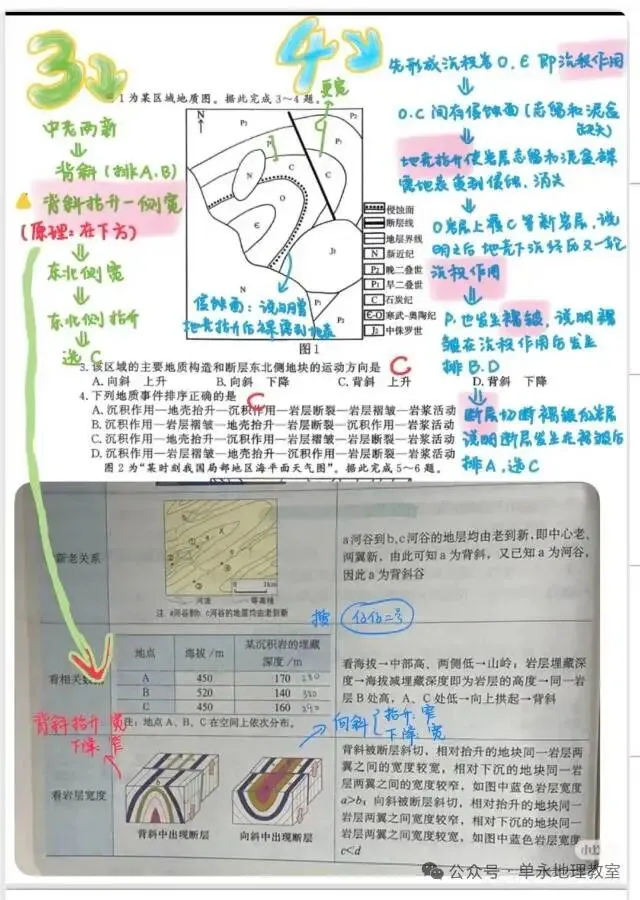 3↓
4↓
图1为某区域地质图。据此完成3～4题。
更宽
C
中老两新
背斜(排A、B)
背斜抬升一侧宽
(原理:在下方)
东北侧宽
东北侧抬升
选C
N
P₂
P₁
P₂
C
C
N
O
Є
J₂
侵蚀面
断层线
地层界线
N 新近纪
P₂ 晚二叠世
P₁ 早二叠世
C 石炭纪
Є-O 寒武-奥陶纪
J₂ 中侏罗世
侵蚀面:说明曾
地壳抬升后裸露到地表
图1
先形成沉积岩O、Є 即沉积作用
O、C间有侵蚀面(志留和泥盆
缺失)
地壳抬升使岩层志留和泥盆裸
露地表受到侵蚀、消失
O岩层上覆C等新岩层,说
明之后地壳下沉经历又一轮
沉积作用
P₁也发生褶皱,说明褶
皱在沉积作用后发生
排B、D
断层切断褶皱的岩层
说明断层发生在褶皱后
排A,选C
3.该区域的主要地质构造和断层东北侧地块的运动方向是 C
A.向斜 上升 B.向斜 下降 C.背斜 上升 D.背斜 下降
4.下列地质事件排序正确的是 C
A.沉积作用—地壳抬升—沉积作用—岩层断裂—岩层褶皱—岩浆活动
B.沉积作用—岩层褶皱—地壳抬升—岩层断裂—沉积作用—岩浆活动
C.沉积作用—地壳抬升—沉积作用—岩层褶皱—岩层断裂—岩浆活动
D.沉积作用—岩层褶皱—地壳抬升—沉积作用—岩层断裂—岩浆活动
图2为“某时刻我国局部地区海平面天气图”。据此完成5～6题。
新老关系
河流 等高线
注:a河谷到b、c河谷的地层均由老到新
a河谷到b、c河谷的地层均由老到新,即中心老、
两翼新,由此可知a为背斜,又已知a为河谷,
因此a为背斜谷
看相关数据
地点 海拔/m 某沉积岩的埋藏
深度/m
A 450 170 280
B 520 140
C 450 160 290
注:地点A、B、C在空间上依次分布。
看海拔→中部高、两侧低→山岭;岩层埋藏深
度→海拔减埋藏深度即为岩层的高度→同一岩
层B处高,A、C处低→向上拱起→背斜
背斜抬升:宽
下降:窄
向斜 抬升:窄
下降:宽
看岩层宽度
背斜中出现断层 向斜中出现断层
背斜被断层斜切,相对抬升的地块同一岩层两
翼之间的宽度较宽,相对下沉的地块同一岩
层两翼之间的宽度较窄,如图中蓝色岩层宽度
a>b;向斜被断层斜切,相对抬升的地块同一
岩层两翼之间宽度较窄,相对下沉的地块同一
岩层两翼之间宽度较宽,如图中蓝色岩层宽度
c<d
公众号·单永地理教室